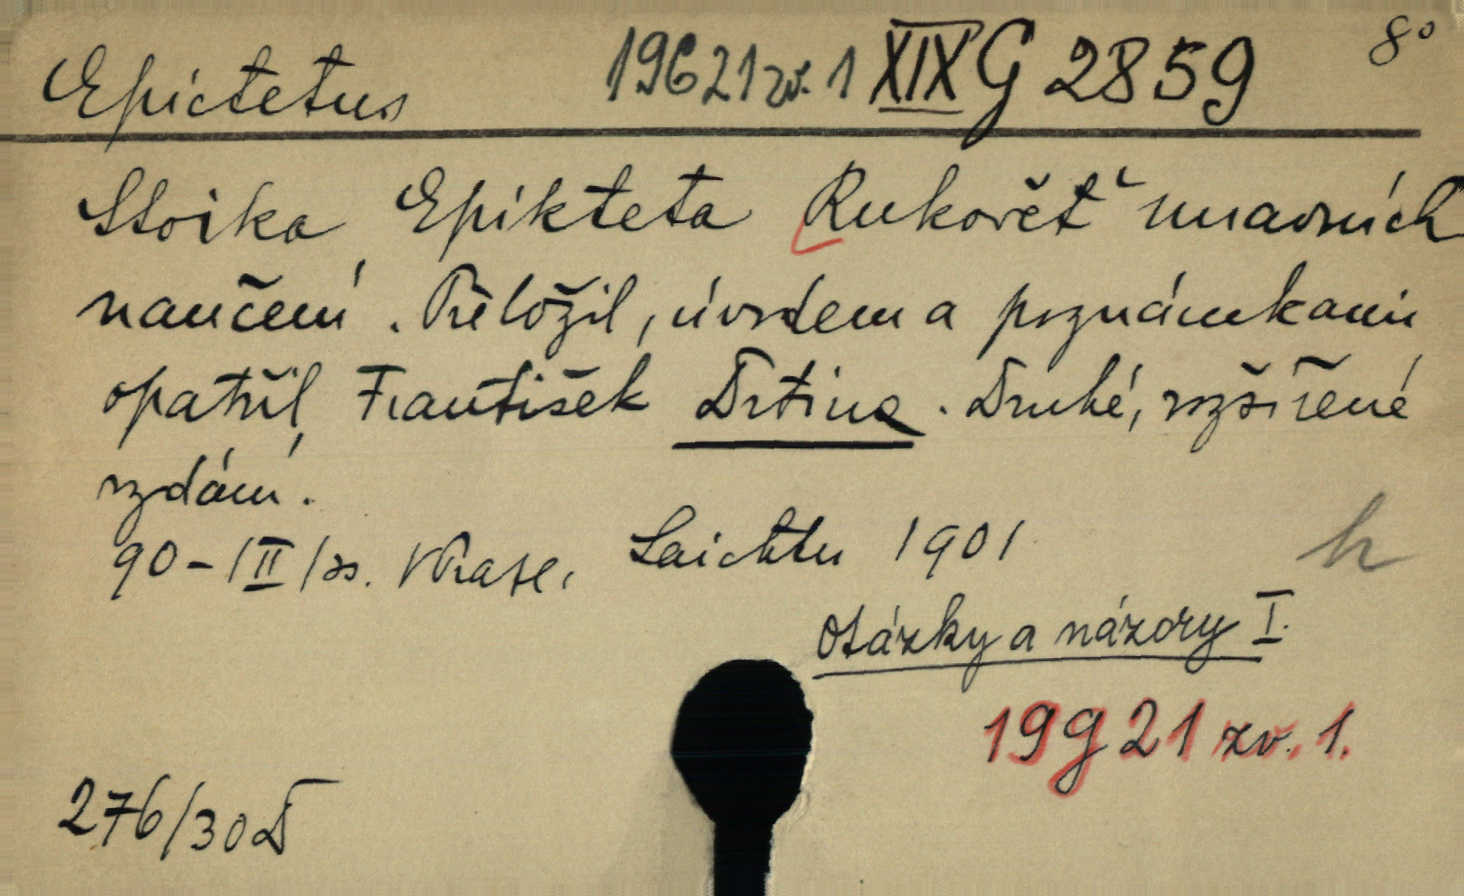 Epictetus 19G21 zv. 1 XIX G 2859 8°
Stoika Epikteta Rukověť mravních
naučení. Přeložil, úvodem a poznámkami
opatřil František Drtina. Druhé, rozšířené
vydání.
90-/II/ss. V Praze, Laichter 1901 h
Otázky a názory I.
19 g 21 zv. 1.
276/30 D